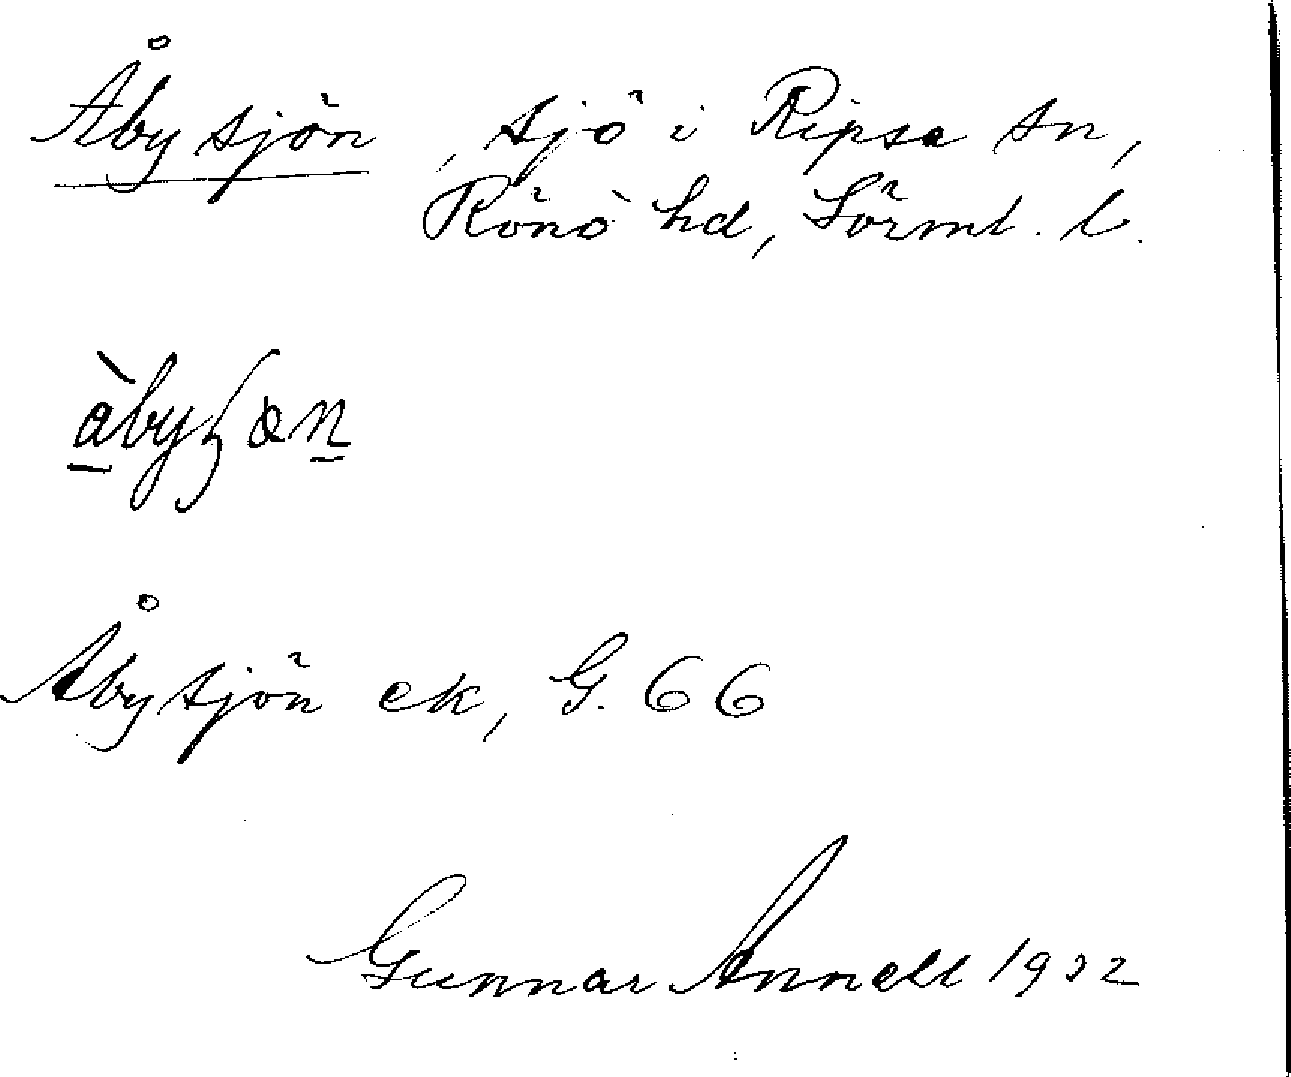 Åbysjön, sjö i Ripsa sn,
Rönö hd, Sörml. l.
Åbysjön ek, G. 66
Gunnar Annell 1932